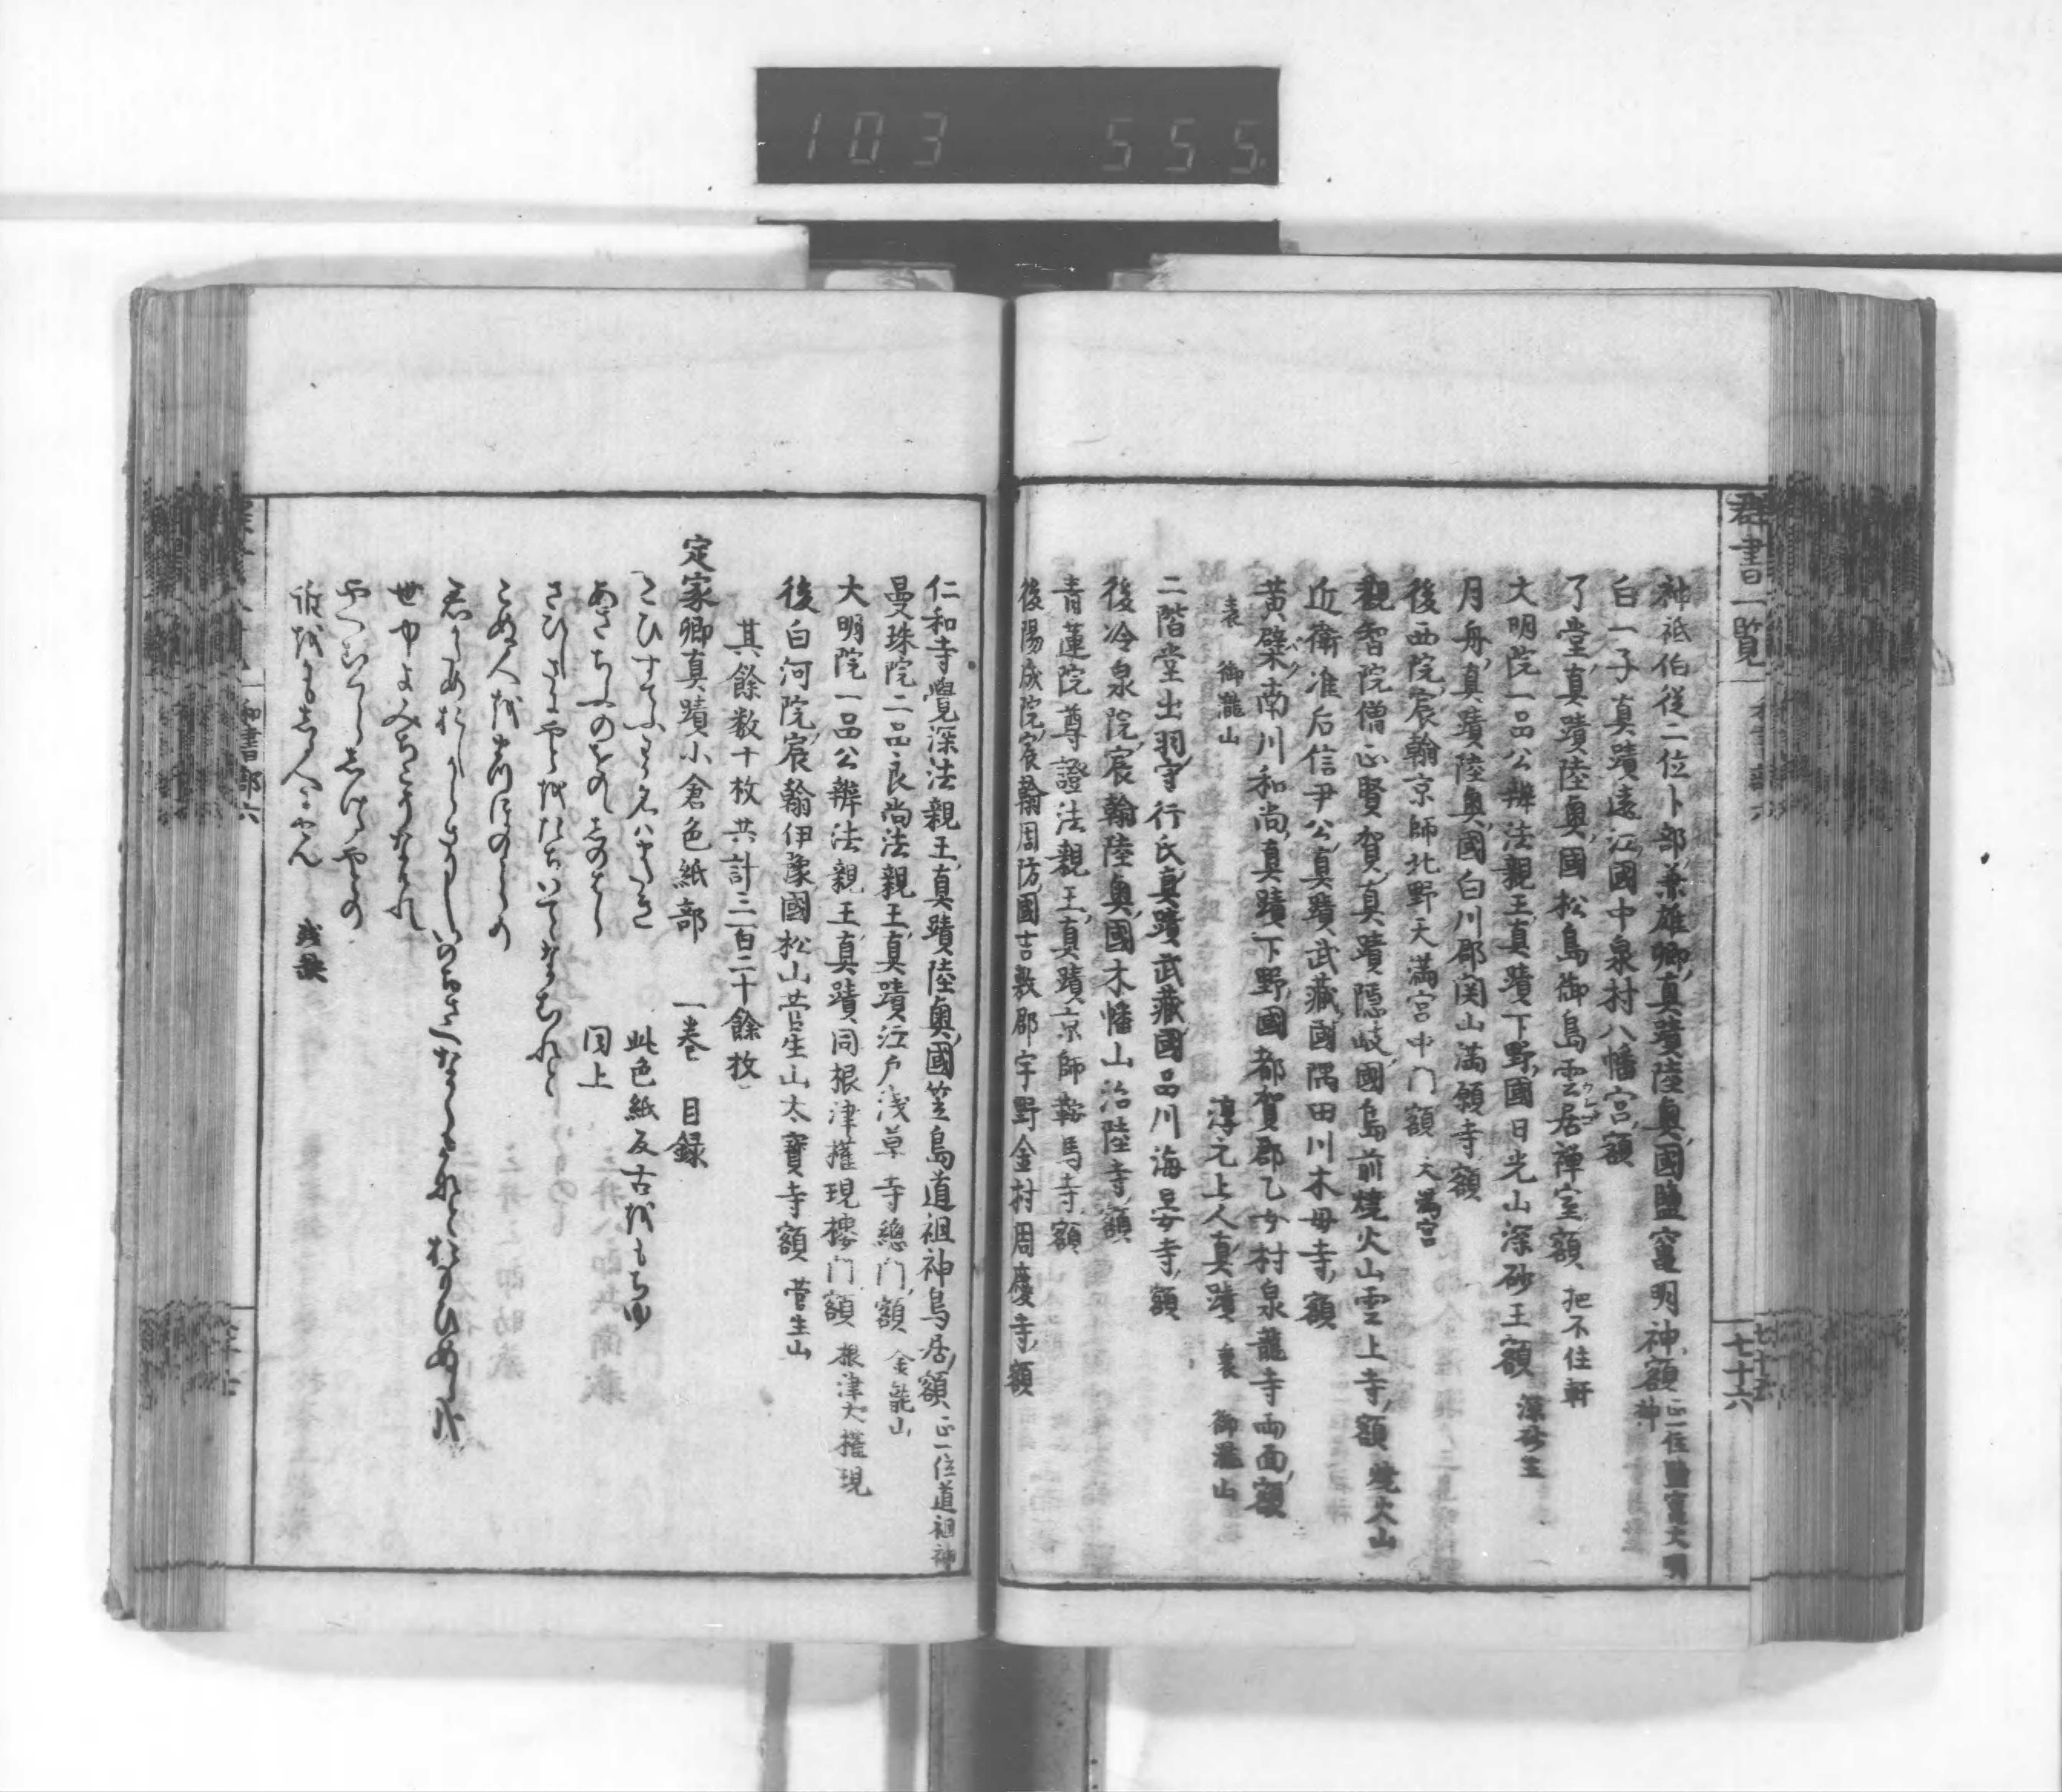 103 555
群書一覧
七十六
神祇伯従二位卜部兼雄卿真蹟陸奥國鹽竈明神額 正一位鹽竈大明神
白一子真蹟遠江國中泉村八幡宮額
了堂真蹟陸奥國松島御島雲居禅室額 把不住軒
大明院一品公辨法親王真蹟下野國日光山深砂王額 深砂王
月舟真蹟陸奥國白川郡関山満願寺額
後西院宸翰京師北野天満宮中門額 天満宮
観智院僧正賢賀真蹟隠岐國島前焼火山雲上寺額 焼火山
近衛准后信尹公真蹟武藏國隅田川木母寺額
黄檗南川和尚真蹟下野國都賀郡乙女村泉龍寺両面額
表 御瀧山 淳元上人真蹟 裏 御瀧山
二階堂出羽守行氏真蹟武藏國品川海晏寺額
後冷泉院宸翰陸奥國木幡山治陸寺額
青蓮院尊證法親王真蹟京師鞍馬寺額
後陽成院宸翰周防國吉敷郡宇野金村周慶寺額
仁和寺覺深法親王真蹟陸奥國笠島道祖神鳥居額 正一位道祖神
曼珠院二品良尚法親王真蹟江戸浅草寺總門額 金龍山
大明院一品公辨法親王真蹟同根津権現樓門額 根津大権現
後白河院宸翰伊豫國松山菅生山太寳寺額 菅生山
其餘数十枚共計三百二十餘枚
定家卿真蹟小倉色紙部 一巻 目録
こひすてふ 此色紙反古越もちゆ
あさちふのをのゝしのはら 同上
さひしさにやと越たちいてゝなかむれは
こぬ人越まつほのうらの
世中よみちこそなけれ
やくやもしほの
誰越かもしる人にせん
和書部六